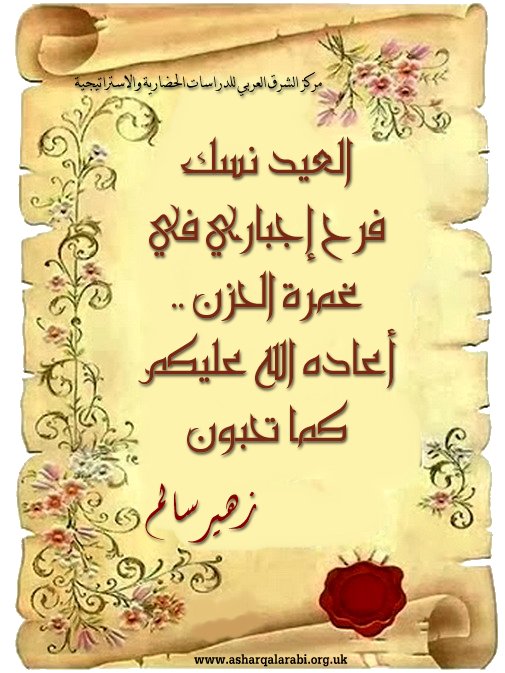 مركز الشرق العربي للدراسات الحضارية والاستراتيجية
العيد نسك
فرح إجباري في
غمرة الحزن ..
أعاده الله عليكم
كما تحبون
زهير سالم
www.asharqalarabi.org.uk